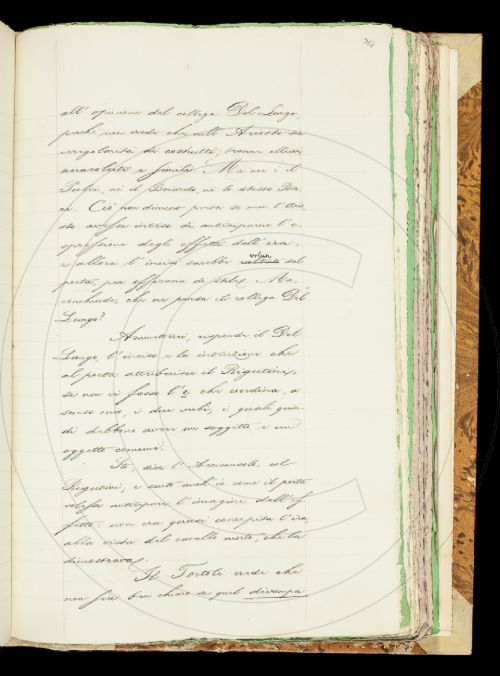 761
all' opinione del collega Del-Lungo,
perchè non crede che nell' Ariosto sia
irregolarità di costrutti, tranne ellissi
anacoluti e simili. Ma nè il
Pulci, nè il Boiardo, nè lo stesso Ber
ni. Ciò non dimeno pensa se mai l'Ario
sto avesse inteso di anticipare l'e
spressione degli effetti dell' ira;
e allora l' inciso sarebbe volun
tal
poeta, per efficacia di stile. Ma,
conchiude, che ne pensa il collega Del
Lungo?
Ammetterei, risponde il Del
Lungo, l' inciso e la intenzione che
al poeta attribuisce il Rigutini,
se non vi fosse l' e che coordina, a
senso mio, i due verbi, i quali quin
di debbono avere un soggetto e un
oggetto comuni.
Sto, dice l' Arciconsolo, col
Rigutini, e sento anch' io come il poeta
volesse anticipare l' imagine dell' ef
fetto; non era già concepita l' ira,
alla vista del cavallo morto, che la
dimostrava.
Il Tortoli crede che
non sia ben chiaro se quel divampa